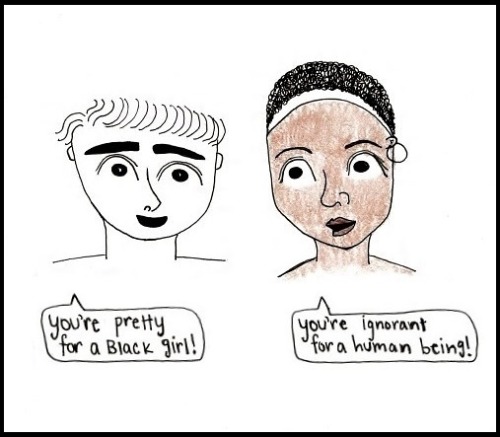 you're pretty
for a Black girl!
you're ignorant
for a human being!